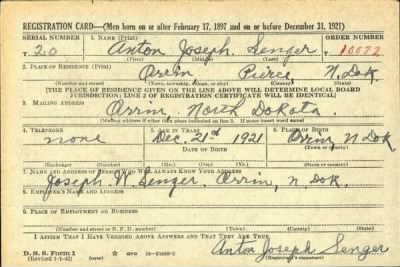 REGISTRATION CARD—(Men born on or after February 17, 1897 and on or before December 31, 1921)
SERIAL NUMBER 1. NAME (Print) ORDER NUMBER
T 20 Anton Joseph Senger 10022
(First) (Middle) (Last)
2. PLACE OF RESIDENCE (Print)
Orrin Pierce N. Dak.
(Number and street) (Town, township, village, or city) (County) (State)
[THE PLACE OF RESIDENCE GIVEN ON THE LINE ABOVE WILL DETERMINE LOCAL BOARD
JURISDICTION; LINE 2 OF REGISTRATION CERTIFICATE WILL BE IDENTICAL]
3. MAILING ADDRESS
Orrin, North Dakota.
[Mailing address if other than place indicated on line 2. If same insert word same]
4. TELEPHONE 5. AGE IN YEARS 6. PLACE OF BIRTH
none Dec. 21st 1921 Orrin, N. Dak
DATE OF BIRTH
(Exchange) (Number) (Mo.) (Day) (Yr.) (State or country)
7. NAME AND ADDRESS OF PERSON WHO WILL ALWAYS KNOW YOUR ADDRESS
Joseph W. Senger, Orrin, N. Dak.
8. EMPLOYER'S NAME AND ADDRESS
9. PLACE OF EMPLOYMENT OR BUSINESS
(Number and street or R. F. D. number) (Town) (County) (State)
I AFFIRM THAT I HAVE VERIFIED ABOVE ANSWERS AND THAT THEY ARE TRUE.
D. S. S. Form 1 GPO Anton Joseph Senger
(Revised 1-1-42) (Registrant's signature)